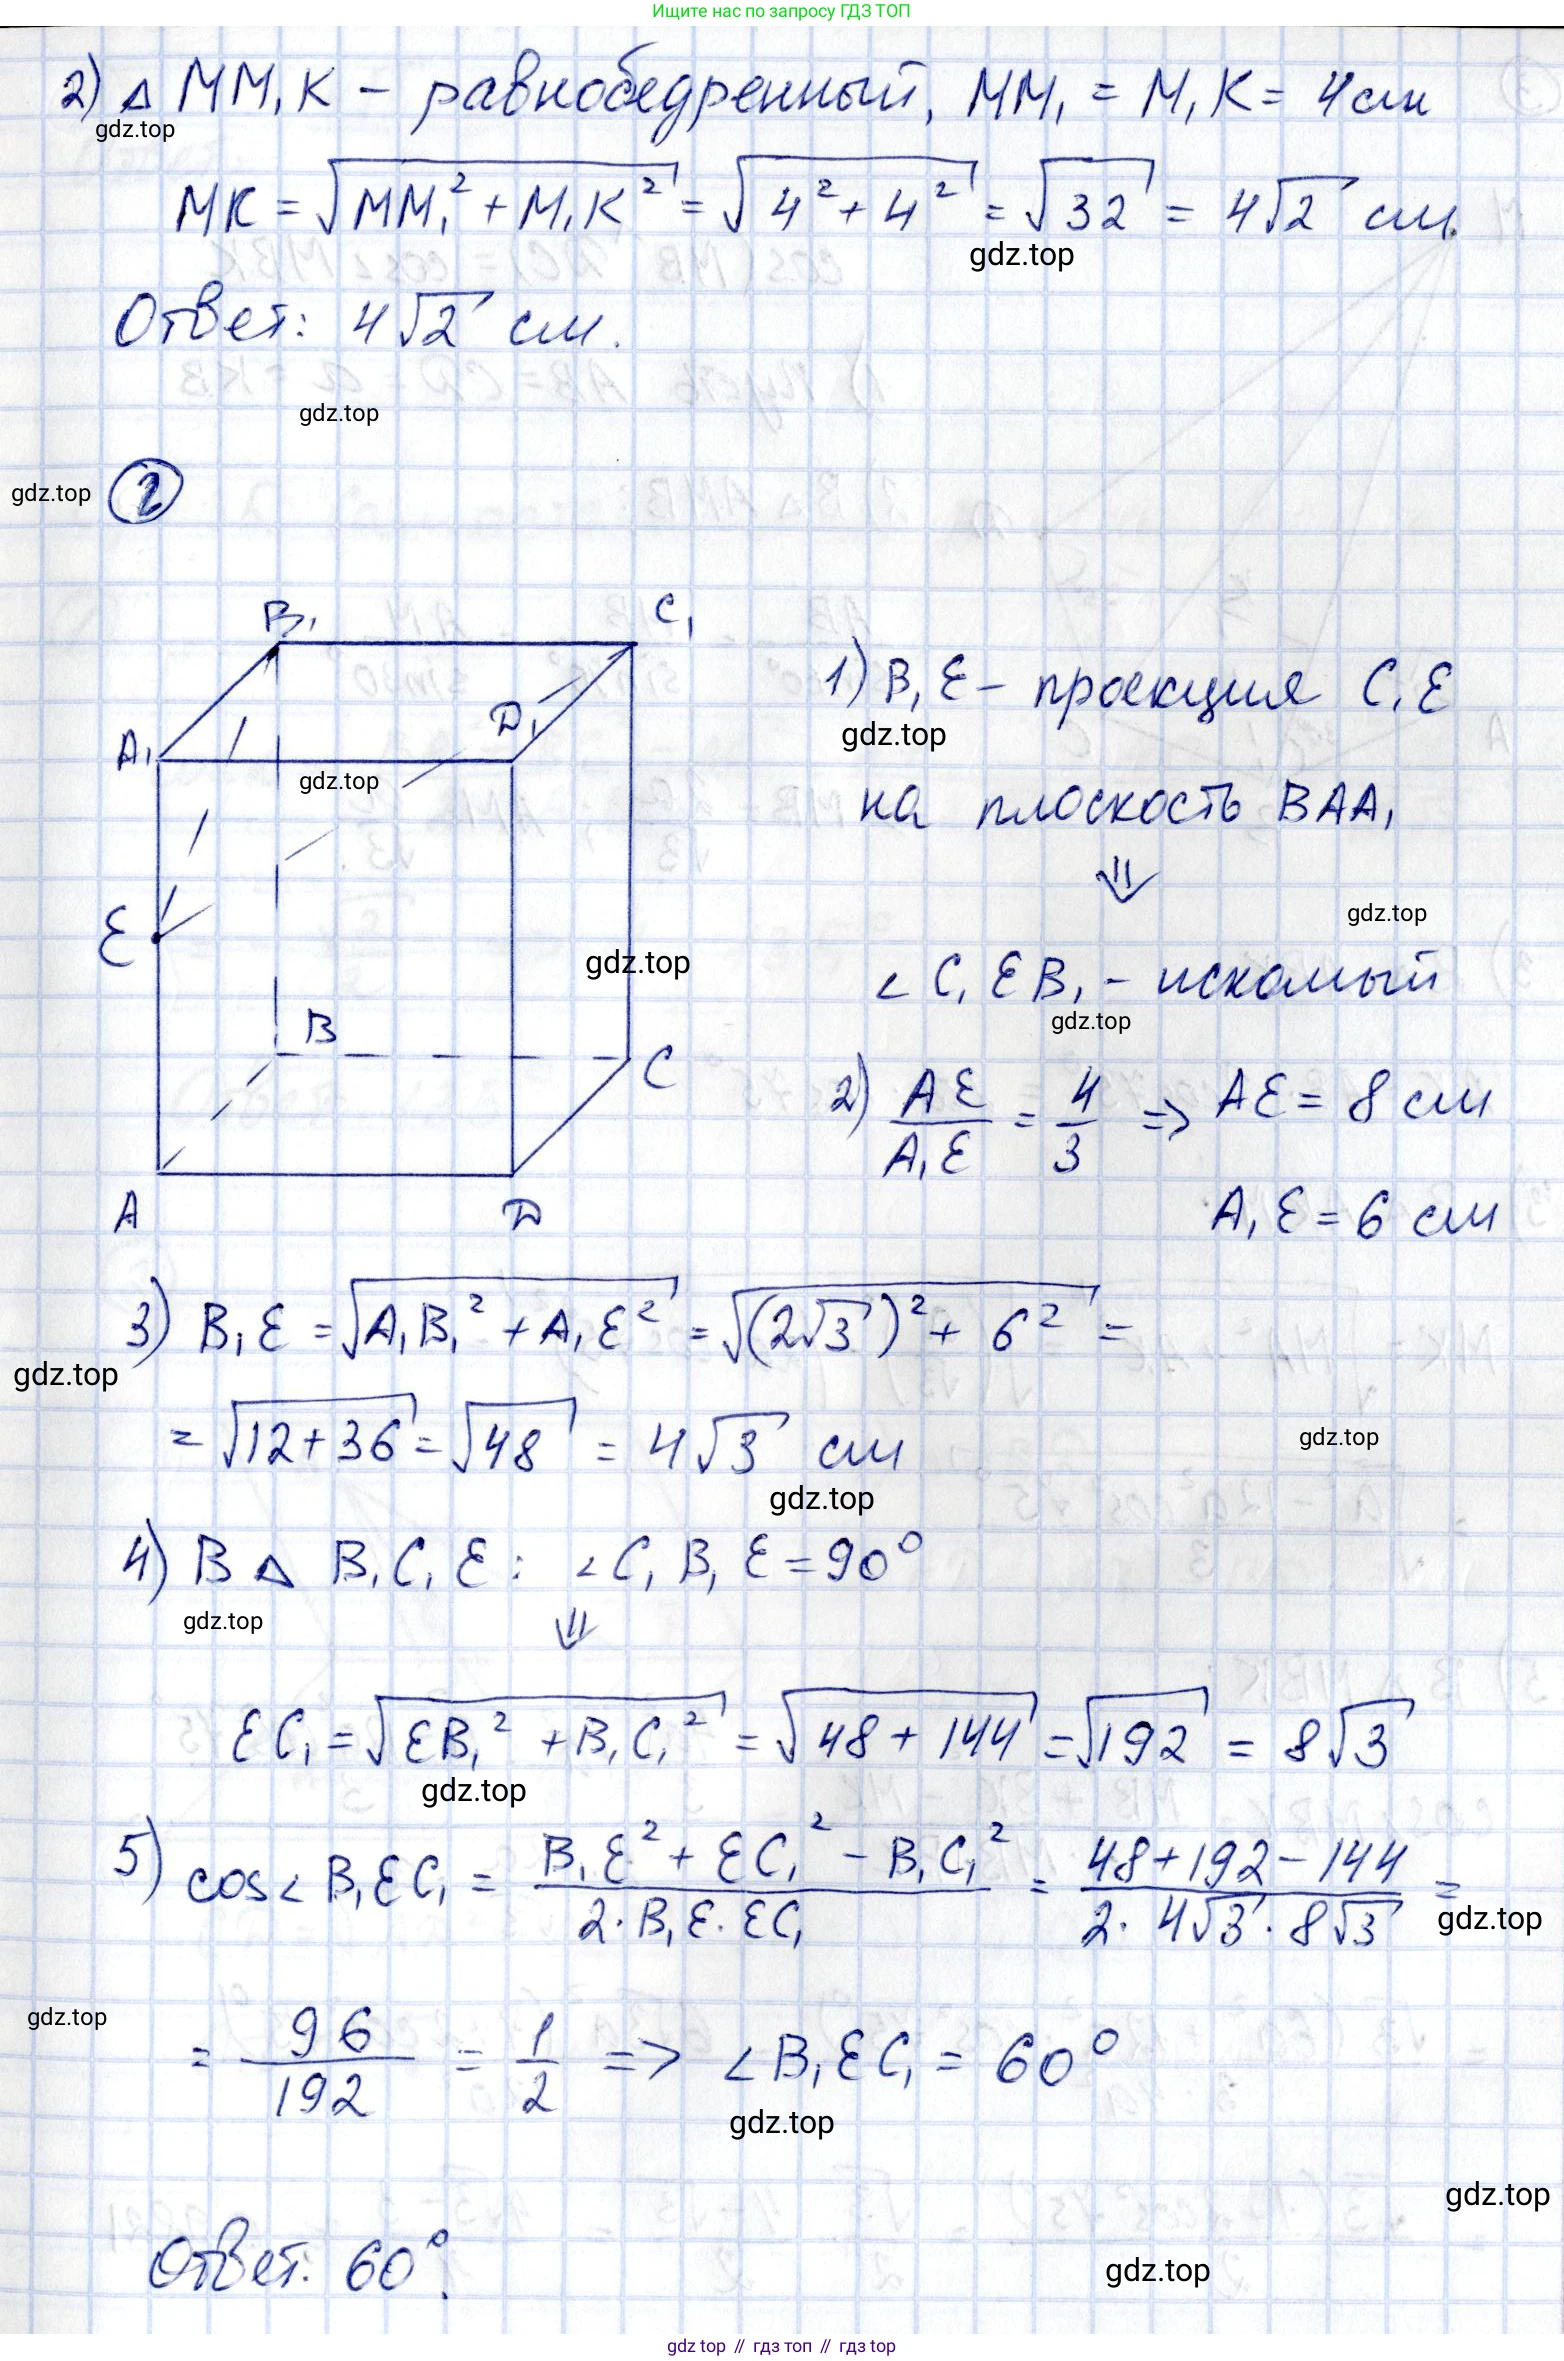 Ищите нас по запросу ГДЗ ТОП
2) Δ MM₁K – равнобедренный, MM₁ = M₁K = 4 см
gdz.top
MK = √(MM₁² + M₁K²) = √(4² + 4²) = √32 = 4√2 см.
gdz.top
Ответ: 4√2 см.
gdz.top
gdz.top
2
B₁ C₁
1) B₁E – проекция C₁E
D₁
gdz.top
A₁
gdz.top
на плоскость BAA₁
⇓
gdz.top
E
gdz.top
∠C₁EB₁ – искомый
gdz.top
B
C
2) AE/A₁E = 4/3 => AE = 8 см
A D
A₁E = 6 см
3) B₁E = √(A₁B₁² + A₁E²) = √((2√3)² + 6²) =
gdz.top
= √(12+36) = √48 = 4√3 см
gdz.top
gdz.top
4) В Δ B₁C₁E: ∠C₁B₁E = 90°
gdz.top
⇓
EC₁ = √(EB₁² + B₁C₁²) = √(48 + 144) = √192 = 8√3
gdz.top
5) cos∠B₁EC₁ = (B₁E² + EC₁² – B₁C₁²)/(2·B₁E·EC₁) = (48+192–144)/(2·4√3·8√3) =
gdz.top
gdz.top
= 96/192 = 1/2 => ∠B₁EC₁ = 60°
gdz.top
gdz.top
Ответ: 60°.
gdz.top
gdz top // гдз топ // гдз top